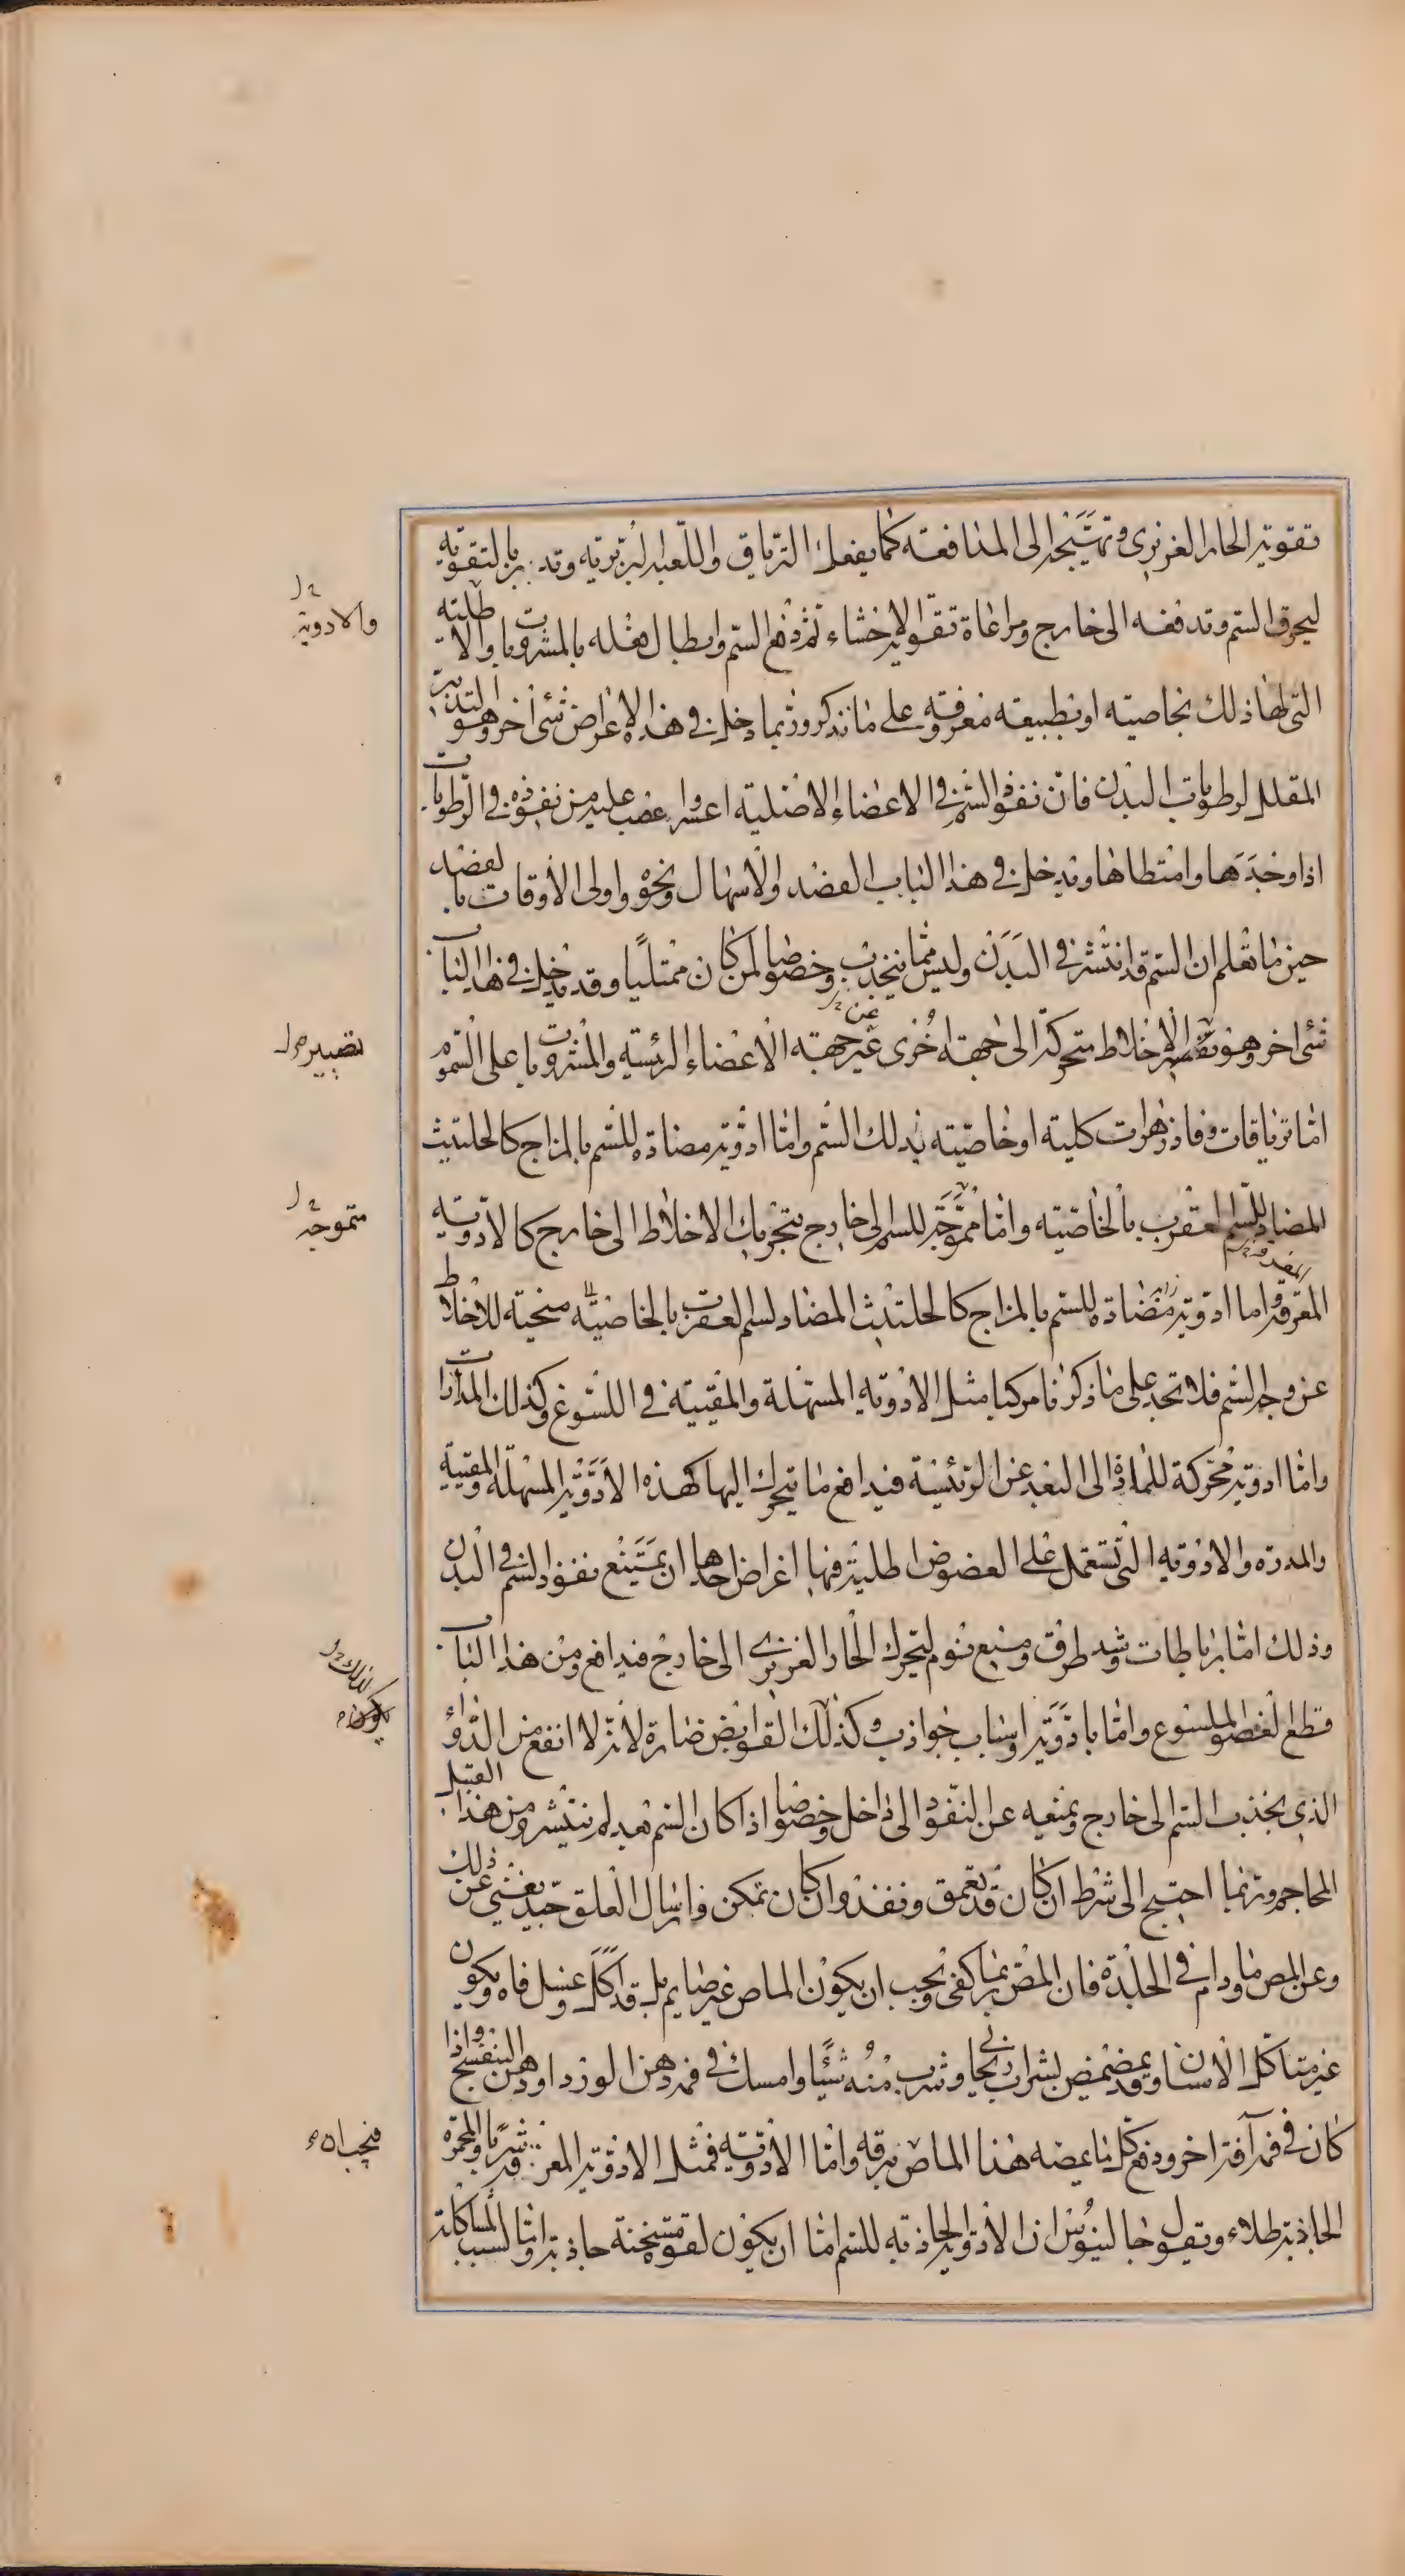 تقوية الحار الغريزى وتهييجه الى المدافعة كما يفعل الترياق واللعبة البربرية وتدبير بالتقوية
ليحرق السم وتدفعه الى خارج ومراعاة تقوية الاحشاء ثم دفع السم وابطال فعله بالمشروبات والاطلية
والادوية
التى لها ذلك بخاصيته او بطبيعته معروفة وعلى ما نذكر وربما دخل فى هذه الاغراض شئ اخر وهو التدبير
المقلل لرطوبات البدن فان نفوذ السم فى الاعضاء الاصلية اعسر واعصب عليه من نفوذه فى الرطوبات
اذا وجدها وامتطاها ويدخل فى هذا الباب الفصد والاسهال ونحوه واولى الاوقات بالفصد
حين ما تعلم ان السم قد انتشر فى البدن وليس مما ينجذب وخصوصا لمن كان ممتليا وقد يدخل فى هذا الباب
شئ اخر وهو الاخلاط متحركة الى جهة اخرى غير جهة الاعضاء الرئيسة والمشروبات على السموم
تصيير
اما ترياقات وفاذزهرات كلية او خاصية بذلك السم واما ادوية مضادة للسم بالمزاج كالحلتيث
المضاد للسم العقرب بالخاصية واما مموجة للسم الى خارج بتحريك الاخلاط الى خارج كالادوية
متموجة
المعرقة واما ادوية مضادة للسم بالمزاج كالحلتيث المضاد لسم العقرب بالخاصية منحية للاخلاط
عن وجه السم فلا تجد على ما ذكرنا مركبا مثل الادوية المسهلة والمقيية فى اللسوع وكذلك المدرات
واما ادوية محركة للمادة الى البعد عن الرئيسة فيدافع ما يتحرك اليها كهذه الادوية المسهلة والمقيية
والمدرة والادوية التى تستعمل على العضو اطلية فيها اغراض احدها ان يمنع نفوذ السم فى البدن
وذلك اما برباطات وشد طرق ومنع نوم ليتحرك الحار الغريزى الى خارج فيدافع ومن هذا الباب
قطع العضو الملسوع واما بادوية واسباب جواذب وكذلك القوابض ضارة لانه لا انفع من الدواء
الذى يجذب السم الى خارج ويمنعه عن النفوذ الى داخل وخصوصا اذا كان السم بعد لم ينتشر ومن هذا القبيل
المحاجم وربما احتيج الى شرط ان كان قد تعمق ونفذ وان كان تمكن فارسال العلق جيد يغنى عن ذلك
وعن المص ما ودام فى الجلدة فان المص ربما كفى ويجب ان يكون الماص غير صايم بل قد اكل وغسل فاه ويكون
غير متاكل الاسنان وقد يمضمض بشراب ريحانى وشرب منه شيئا وامسك فى فمه دهن الورد او دهن البنفسج واذا
كان فى فمه آفة اخر ودفع كل ما يمصه هذا الماص بزقه واما الادوية فمثل الادوية المعرقة شربا والمحمرة
فيجب ان
الجاذبة طلاء ويقول جالينوس ان الادوية الجاذبة للسم اما ان يكون لقوة مسخنة جاذبة واما لسبب المشاكلة